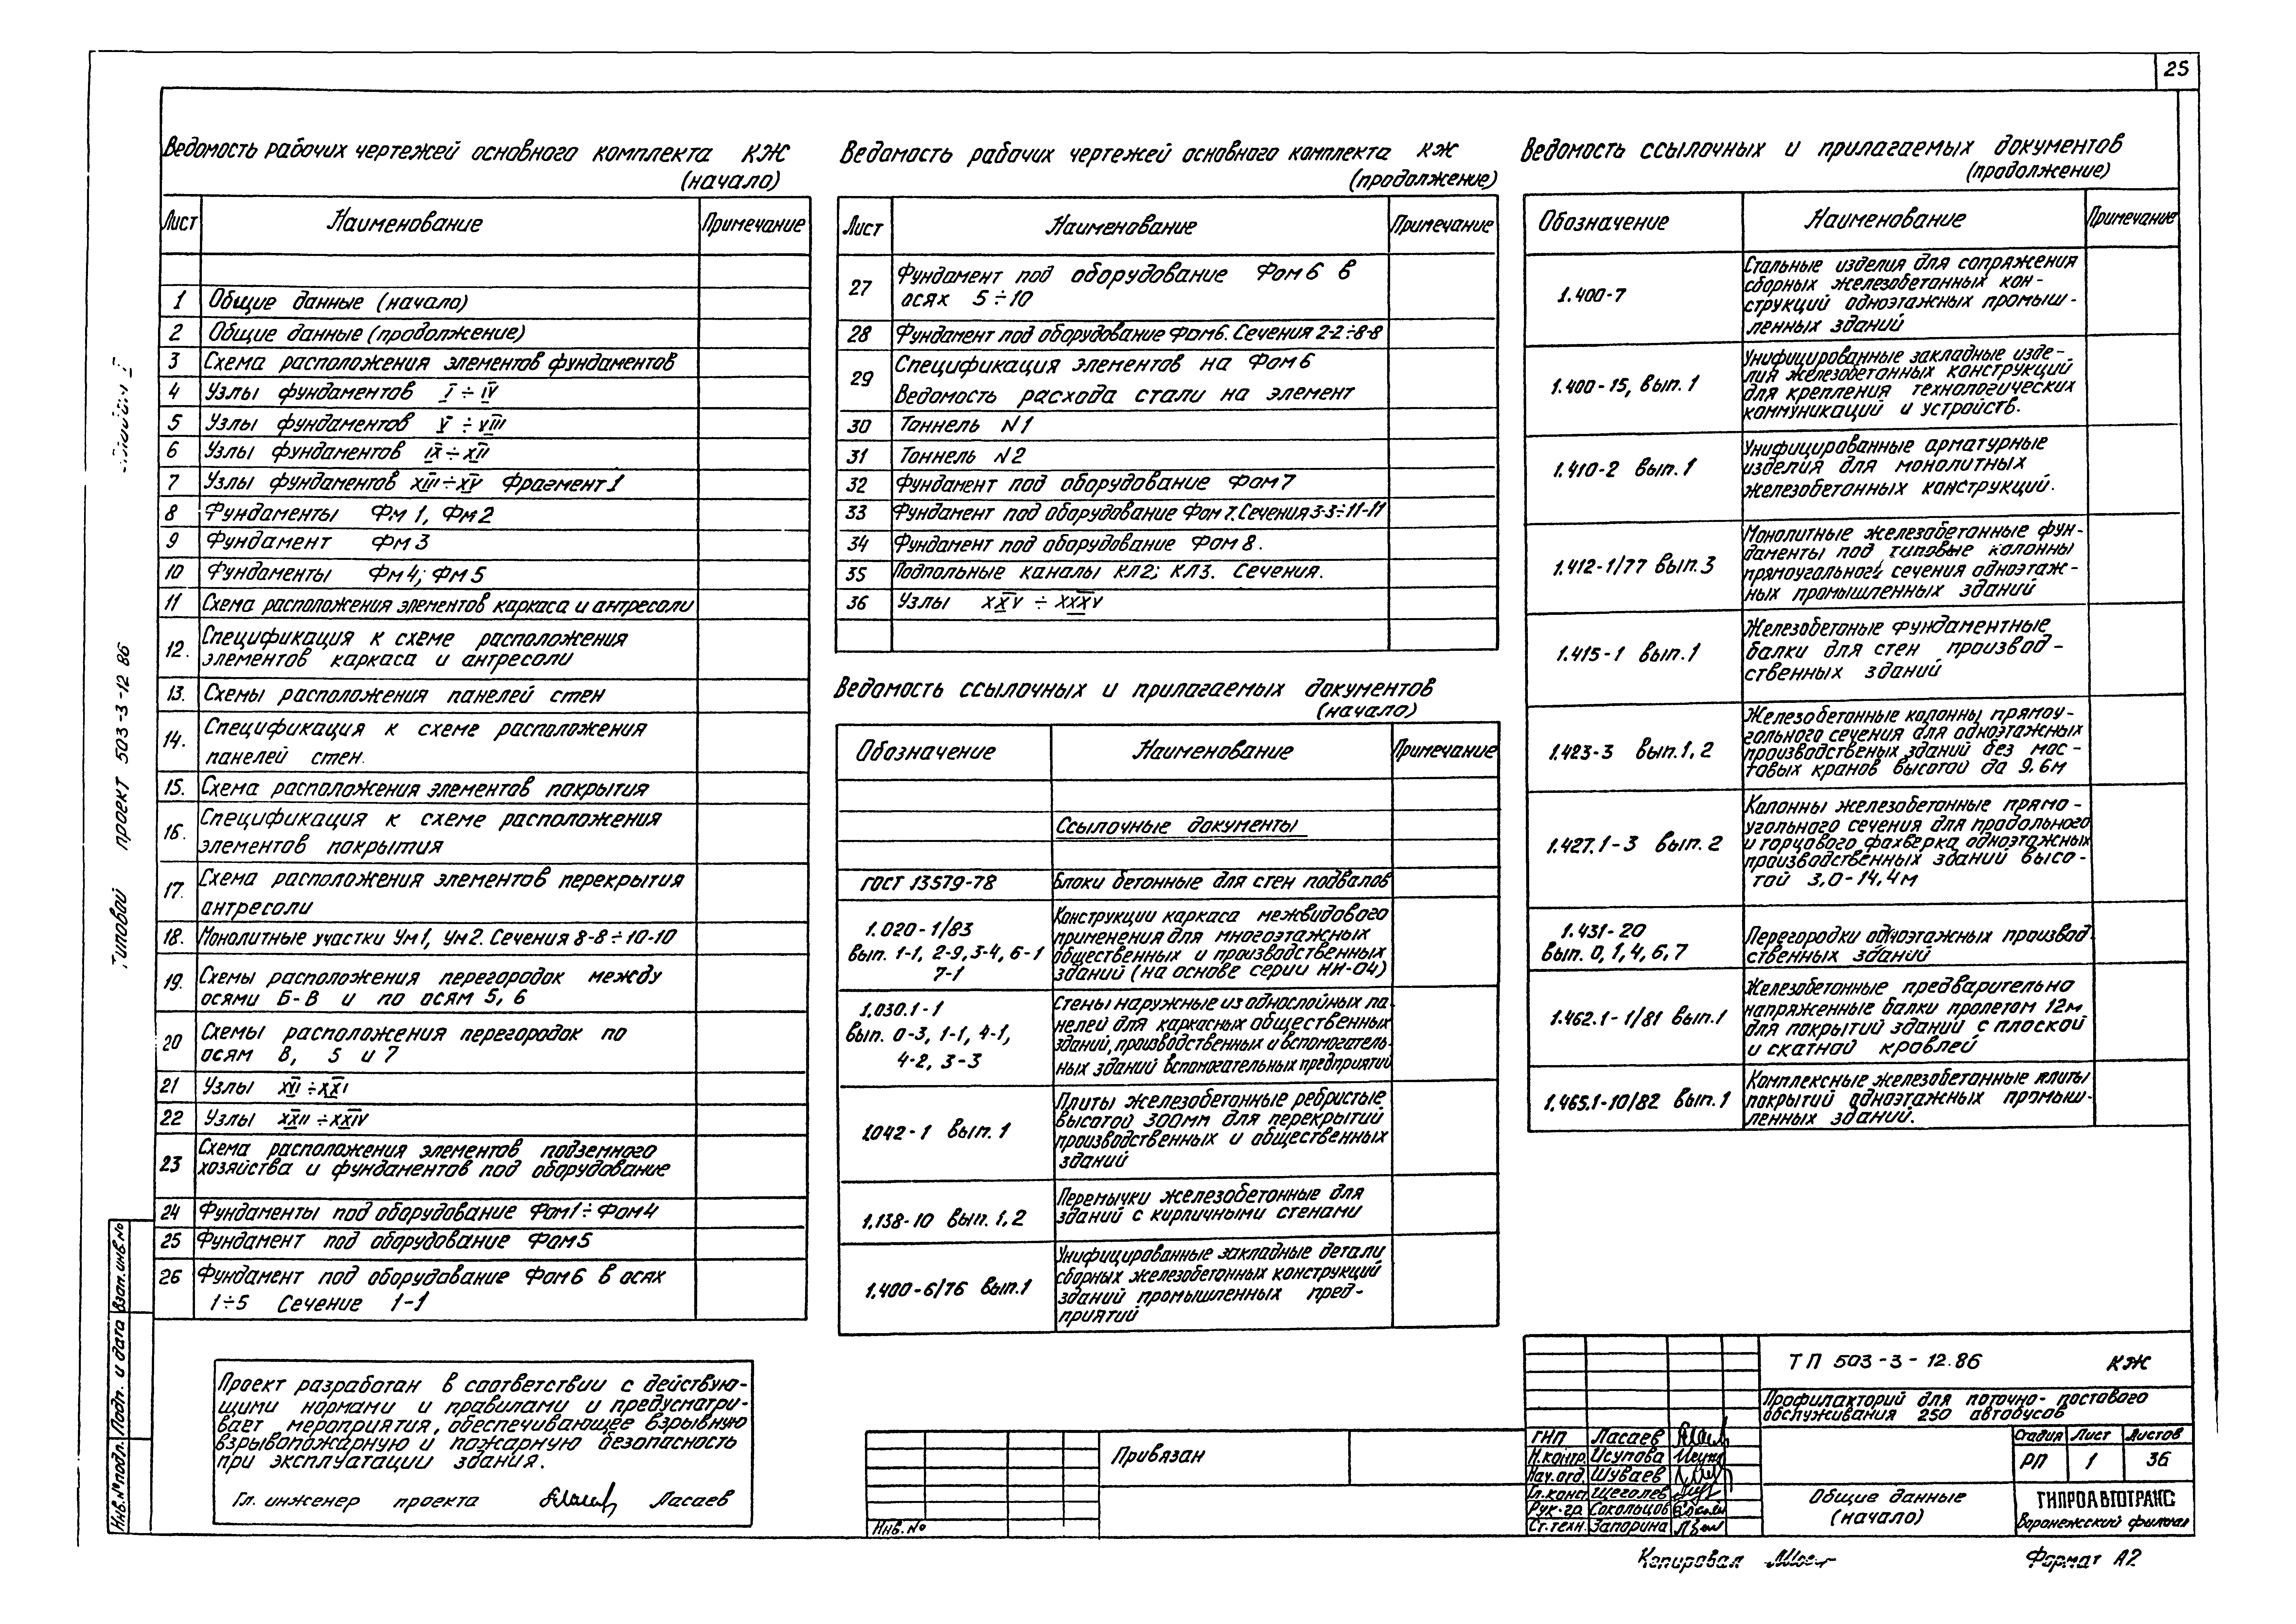 25
Ведомость рабочих чертежей основного комплекта КЖ
(начало)
Лист Наименование Примечание
1 Общие данные (начало)
2 Общие данные (продолжение)
3 Схема расположения элементов фундаментов
4 Узлы фундаментов I ÷ IV
5 Узлы фундаментов V ÷ VIII
6 Узлы фундаментов IX ÷ XII
7 Узлы фундаментов XIII ÷ XV Фрагмент 1
8 Фундаменты Фм 1, Фм 2
9 Фундамент Фм 3
10 Фундаменты Фм 4; Фм 5
11 Схема расположения элементов каркаса и антресоли
12. Спецификация к схеме расположения
элементов каркаса и антресоли
13. Схемы расположения панелей стен
14. Спецификация к схеме расположения
панелей стен.
15. Схема расположения элементов покрытия
16. Спецификация к схеме расположения
элементов покрытия
17. Схема расположения элементов перекрытия
антресоли
18. Монолитные участки Ум1, Ум2. Сечения 8-8÷10-10
19. Схемы расположения перегородок между
осями Б-В и по осям 5, 6
20 Схемы расположения перегородок по
осям В, 5 и 7
21 Узлы XVI ÷ XXI
22 Узлы XXII ÷ XXIV
23 Схема расположения элементов подземного
хозяйства и фундаментов под оборудование
24 Фундаменты под оборудование Фом1÷Фом4
25 Фундамент под оборудование Фом5
26 Фундамент под оборудование Фом6 в осях
1÷5 Сечение 1-1
Проект разработан в соответствии с действую-
щими нормами и правилами и предусматри-
вает мероприятия, обеспечивающее взрывную
взрывопожарную и пожарную безопасность
при эксплуатации здания.
Гл. инженер проекта Ласаев
Ведомость рабочих чертежей основного комплекта КЖ
(продолжение)
Лист Наименование Примечание
27 Фундамент под оборудование Фом 6 в
осях 5÷10
28 Фундамент под оборудование Фом6. Сечения 2-2÷8-8
29 Спецификация элементов на Фом 6
Ведомость расхода стали на элемент
30 Тоннель N1
31 Тоннель N2
32 Фундамент под оборудование Фом 7
33 Фундамент под оборудование Фом 7. Сечения 3-3÷11-11
34 Фундамент под оборудование Фом 8.
35 Подпольные каналы КЛ2; КЛ3. Сечения.
36 Узлы XXV ÷ XXXV
Ведомость ссылочных и прилагаемых документов
(начало)
Обозначение Наименование Примечание
Ссылочные документы
ГОСТ 13579-78 Блоки бетонные для стен подвалов
1.020-1/83
вып. 1-1, 2-9, 3-4, 6-1
7-1
Конструкции каркаса межвидового
применения для многоэтажных
общественных и производственных
зданий (на основе серии ИИ-04)
1.030.1-1
вып. 0-3, 1-1, 4-1,
4-2, 3-3
Стены наружные из однослойных па-
нелей для каркасных общественных
зданий, производственных и вспомогатель-
ных зданий вспомогательных предприятий
1.042-1 вып. 1
Плиты железобетонные ребристые
высотой 300мм для перекрытий
производственных и общественных
зданий
1.138-10 вып. 1, 2
Перемычки железобетонные для
зданий с кирпичными стенами
1.400-6/76 вып.1
Унифицированные закладные детали
сборных железобетонных конструкций
зданий промышленных пред-
приятий
Ведомость ссылочных и прилагаемых документов
(продолжение)
Обозначение Наименование Примечание
1.400-7
Стальные изделия для сопряжения
сборных железобетонных кон-
струкций одноэтажных промыш-
ленных зданий
1.400-15, вып. 1
Унифицированные закладные изде-
лия железобетонных конструкций
для крепления технологических
коммуникаций и устройств.
1.410-2 вып. 1
Унифицированные арматурные
изделия для монолитных
железобетонных конструкций.
1.412-1/77 вып. 3
Монолитные железобетонные фун-
даменты под типовые колонны
прямоугольного сечения одноэтаж-
ных промышленных зданий
1.415-1 вып. 1
Железобетоные фундаментные
балки для стен производ-
ственных зданий
1.423-3 вып. 1, 2
Железобетонные колонны прямоу-
гольного сечения для одноэтажных
производственых зданий без мос-
товых кранов высотой до 9,6м
1.427.1-3 вып. 2
Колонны железобетонные прямо-
угольного сечения для продольного
и торцового фахверка одноэтажных
производственных зданий высо-
той 3,0-14,4м
1.431-20
вып. 0, 1, 4, 6, 7
Перегородки одноэтажных производ-
ственных зданий
1.462.1-1/81 вып.1
Железобетонные предварительно
напряженные балки пролетом 12м
для покрытий зданий с плоской
и скатной кровлей
1.465.1-10/82 вып. 1
Комплексные железобетонные плиты
покрытий одноэтажных промыш-
ленных зданий.
Типовой проект 503-3-12 86
Инв.№ подл. Подп. и дата Взам. инв.№
Привязан
Инв. №
ТП 503-3-12.86 КЖ
Профилакторий для поточно-постового
обслуживания 250 автобусов
ГИП Ласаев
Н.контр. Исупова
Нач.отд. Шуваев
Гл.конст. Щеголев
Рук.гр. Сокольцов
Ст.техн. Запорина
Стадия Лист Листов
РП 1 36
Общие данные
(начало)
ГИПРОАВТОТРАНС
Воронежский филиал
Копировал
Формат А2